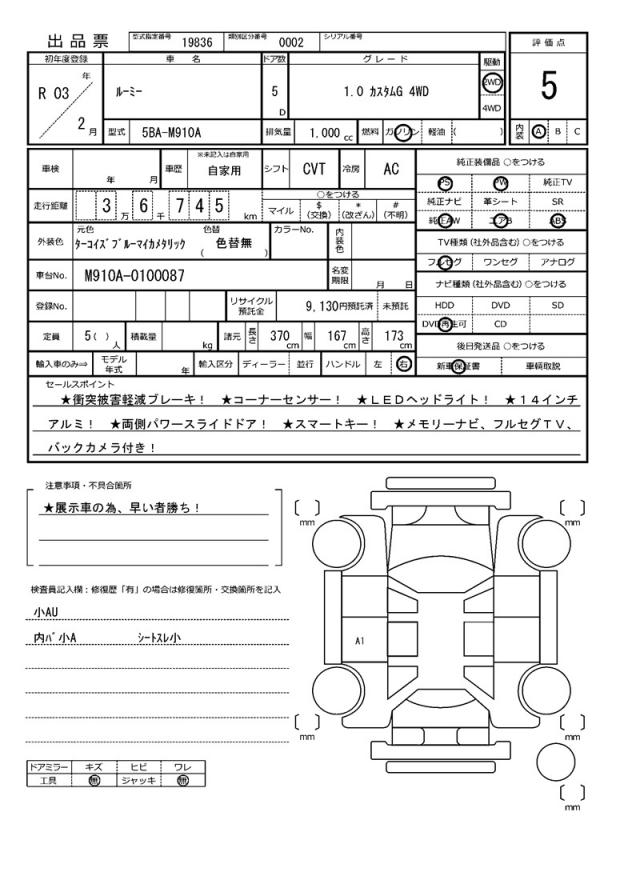 出品票 型式指定番号 19836 類別区分番号 0002 シリアル番号
初年度登録 車名 ドア数 グレード 駆動 評価点
R 03 年 2 月 ルーミー 5 D 1.0 カスタムG 4WD 2WD 4WD 5
型式 5BA-M910A 排気量 1.000 cc 燃料 ガソリン 軽油 ( ) 内装 A B C
車検 年 月 車歴 ※未記入は自家用 自家用 シフト CVT 冷房 AC
純正装備品 ○をつける
PS PW 純正TV
純正ナビ 革シート SR
純正AW エアB ABS
走行距離 3 万 6 千 7 4 5 km ○をつける
マイル $ (交換) * (改ざん) # (不明)
TV種類 (社外品含む) ○をつける
フルセグ ワンセグ アナログ
外装色 元色 ターコイズブルーマイカメタリック 色替 ( 色替無 ) カラーNo. 内装色
車台No. M910A-0100087 名変期限 月 日
ナビ種類 (社外品含む) ○をつける
HDD DVD SD
DVD再生可 CD
登録No. リサイクル預託金 9,130円預託済 未預託
定員 5( ) 人 積載量 kg 諸元 長さ 370 cm 幅 167 cm 高さ 173 cm
後日発送品 ○をつける
新車保証書 車輌取説
輸入車のみ⇒ モデル年式 年 輸入区分 ディーラー 並行 ハンドル 左 右
セールスポイント
★衝突被害軽減ブレーキ! ★コーナーセンサー! ★LEDヘッドライト! ★14インチ
アルミ! ★両側パワースライドドア! ★スマートキー! ★メモリーナビ、フルセグTV、
バックカメラ付き!
注意事項・不具合箇所
★展示車の為、早い者勝ち!
検査員記入欄:修復歴「有」の場合は修復箇所・交換箇所を記入
小AU
内バ小A シートスレ小
ドアミラー キズ ヒビ ワレ
工具 無 ジャッキ 無
[ ] mm
[ ] mm
A1
[ ] mm
[ ] mm
[ ] mm